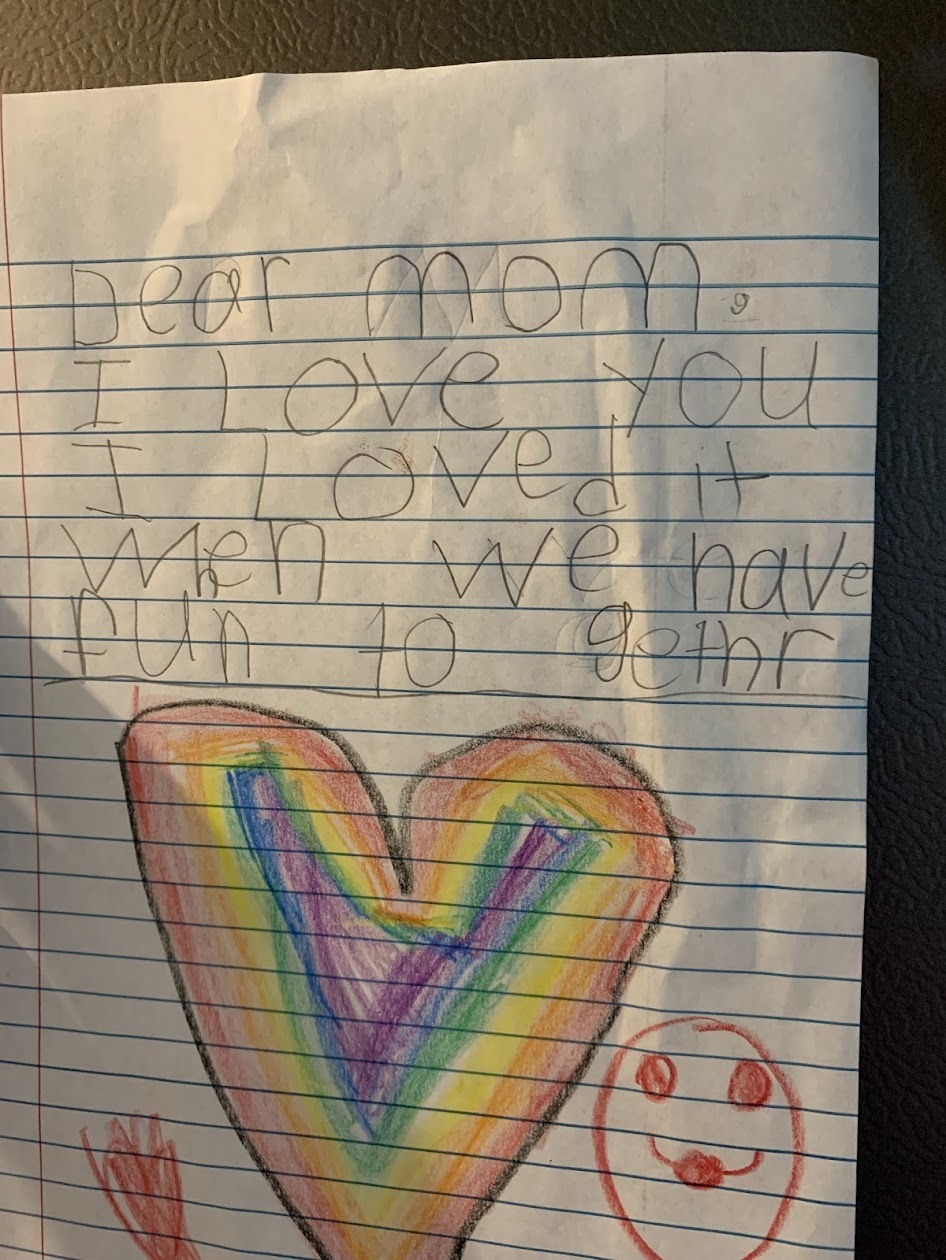 Dear mom,
I Love you
I Loved it
When we have
fun to gethr